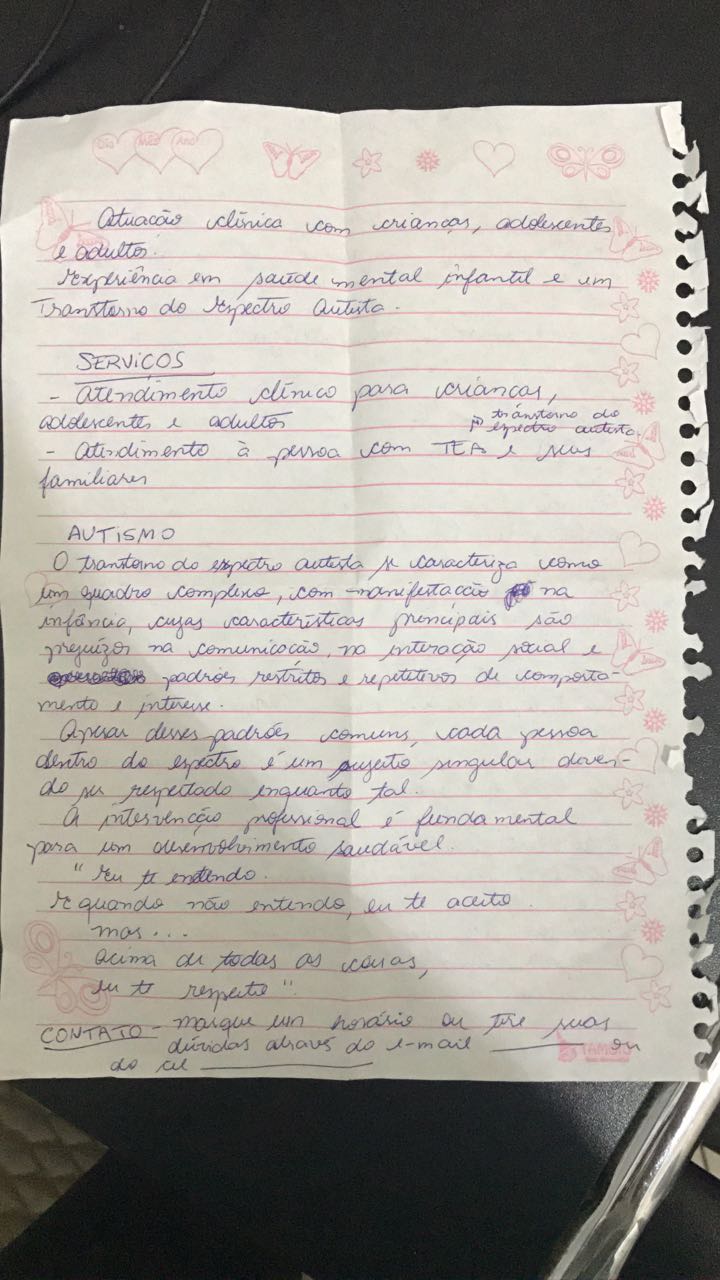 Dia Mês Ano
Atuação clínica com crianças, adolescentes
e adultos.
Experiência em saúde mental infantil e em
Transtorno do Espectro Autista.
SERVIÇOS
- Atendimento clínico para crianças,
adolescentes e adultos
transtorno do
espectro autista.
- Atendimento à pessoa com TEA e seus
familiares
AUTISMO
O transtorno do espectro autista se caracteriza como
um quadro complexo, com manifestação na
infância, cujas características principais são
prejuízos na comunicação, na interação social e
padrões restritos e repetitivos de comporta-
mento e interesse.
Apesar desses padrões comuns, cada pessoa
dentro do espectro é um sujeito singular deven-
do ser respeitado enquanto tal.
A intervenção profissional é fundamental
para um desenvolvimento saudável.
"Eu te entendo.
E quando não entendo, eu te aceito.
mas...
Acima de todas as coisas,
eu te respeito".
CONTATO - marque um horário ou tire suas
dúvidas através do e-mail ________ ou
do cel ________
TAMOIO